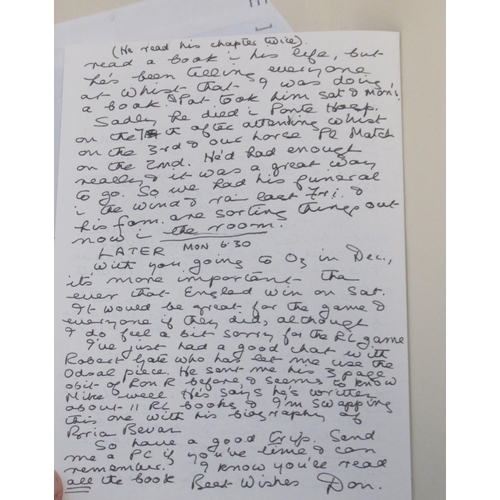 (He read his chapter twice)
read a book i his life, but
he's been telling everyone
at whist that I was doing
a book. Pat took him Sat & Mon's.
Sadly he died i Ponte Hosp.
on the 7th after attending whist
on the 3rd & our horse Pl Match
on the 2nd. He'd had enough
really & it was a great way
to go. So we had his funeral
i the wind & rai last Fri. &
his fam. are sorting things out
now i the room.
LATER MON 6.30
With you going to Oz in Dec.,
it's more important tha
ever that England win on Sat.
It would be great for the game &
everyone if they did, although
I do feel a bit sorry for the RL game
I've just had a good chat with
Robert Gate who has let me use the
Odsal piece. He sent me his 3 page
obit of Ron R before, & seems to know
Mike well. He says he's written
about 11 RL books & I'm swapping
this one with his biography of
Bevan
So have a good trip. Send
me a PC if you've time & can
remember. I know you'll read
all the book Best Wishes Don.